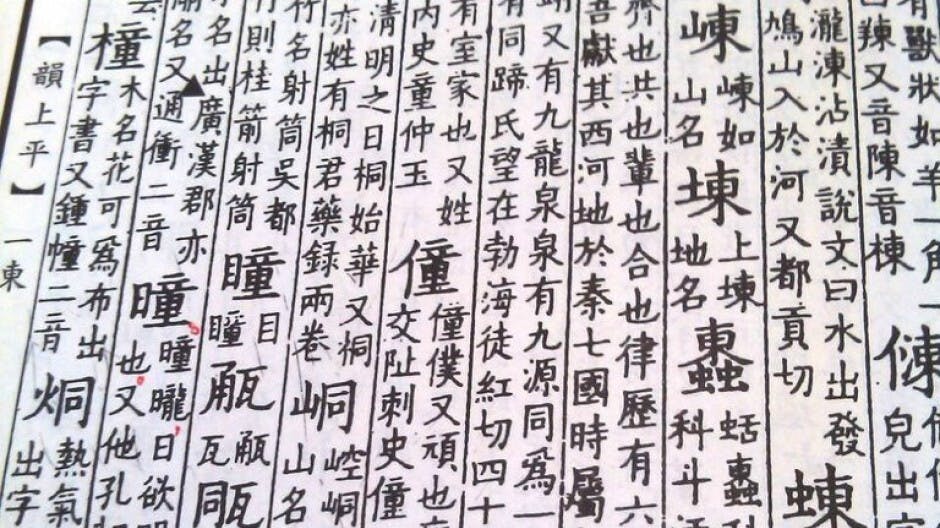 有獸狀如羊一角一
辣又音陳音棟
倲
皃出
瀧涷沾漬說文曰水出發
鳩山入於河又都貢切
蝀
崠
崠如
山名
埬
上埬
地名
䗢
蛞䗢
科斗
齊也共也輩也合也律歷有六
吾獻其西河地於秦七國時屬
又有九龍泉泉有九源同爲一
有同蹄氏望在勃海徒紅切四十
有室家也又姓
內史童仲玉
僮
僮僕又頑也
交阯刺史僮
清明之日桐始華又桐
亦姓有桐君藥録兩卷
峒
崆峒
山名
竹名射筒吳都
則桂箭射筒
瞳
目
瞳
瓦
㼧
名出廣漢郡亦
名又通衝二音
曈
曈曨日欲
也又他孔
橦
木名花可爲布出
字書又鍾幢二音
烔
熱氣
出字
【韻上平】一東